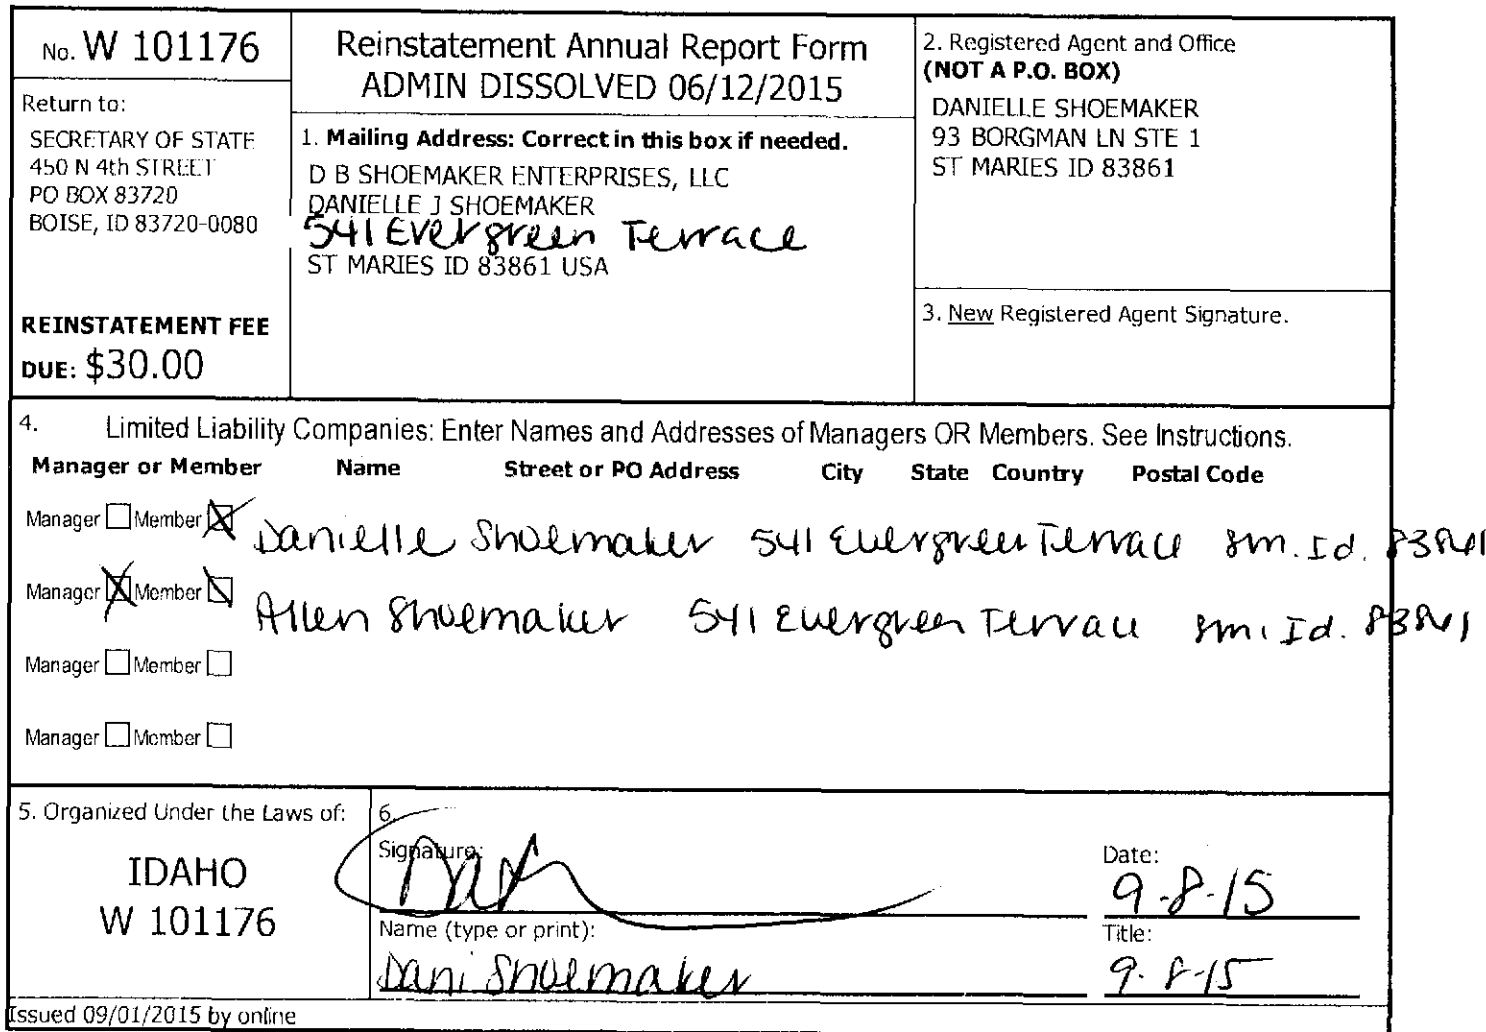 No. W 101176
Return to:
SECRETARY OF STATE
450 N 4th STREET
PO BOX 83720
BOISE, ID 83720-0080
REINSTATEMENT FEE
DUE: $30.00
Reinstatement Annual Report Form
ADMIN DISSOLVED 06/12/2015
1. Mailing Address: Correct in this box if needed.
D B SHOEMAKER ENTERPRISES, LLC
DANIELLE J SHOEMAKER
541 Evergreen Terrace
ST MARIES ID 83861 USA
2. Registered Agent and Office
(NOT A P.O. BOX)
DANIELLE SHOEMAKER
93 BORGMAN LN STE 1
ST MARIES ID 83861
3. New Registered Agent Signature.
4. Limited Liability Companies: Enter Names and Addresses of Managers OR Members. See Instructions.
Manager or Member Name Street or PO Address City State Country Postal Code
Manager Member Danielle Shoemaker 541 Evergreen Terrace sm. Id. 83861
Manager Member Allen Shoemaker 541 Evergreen Terrace sm. Id. 83861
Manager Member
Manager Member
5. Organized Under the Laws of:
IDAHO
W 101176
6.
Signature:
Date:
9-8-15
Name (type or print):
Dani Shoemaker
Title:
9-8-15
Issued 09/01/2015 by online